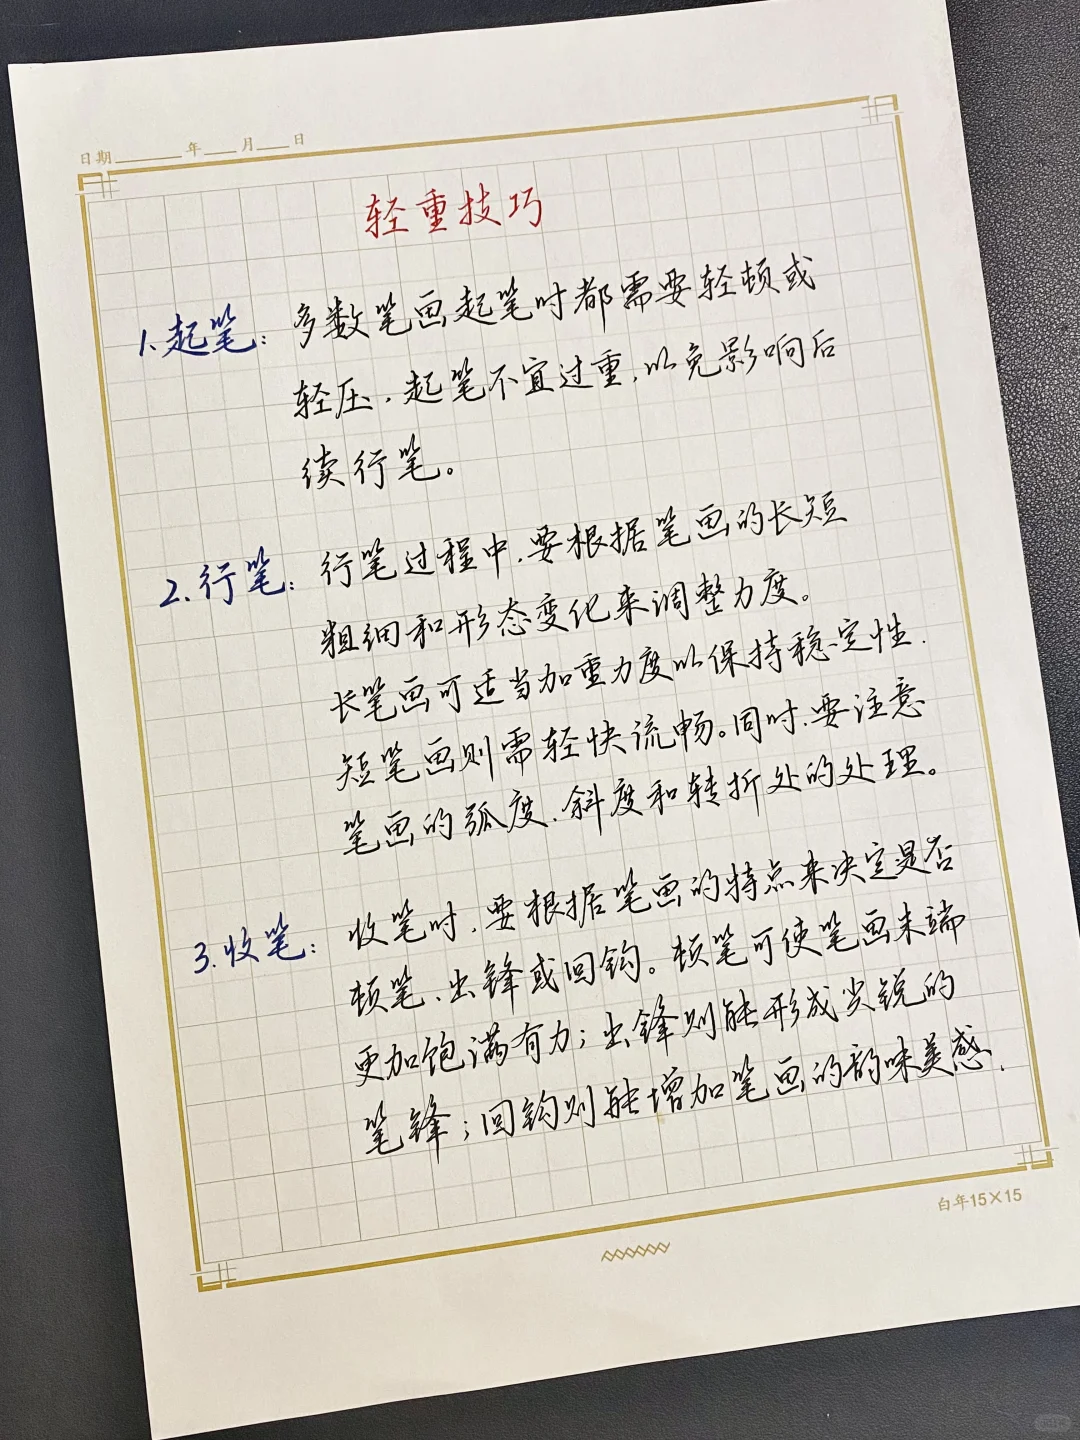 日期______年____月____日
轻重技巧
1.起笔：多数笔画起笔时都需要轻顿或
轻压，起笔不宜过重，以免影响后
续行笔。
2.行笔：行笔过程中，要根据笔画的长短
粗细和形态变化来调整力度。
长笔画可适当加重力度以保持稳定性，
短笔画则需轻快流畅。同时，要注意
笔画的弧度、斜度和转折处的处理。
3.收笔：收笔时，要根据笔画的特点来决定是否
顿笔、出锋或回钩。顿笔可使笔画末端
更加饱满有力；出锋则能形成尖锐的
笔锋；回钩则能增加笔画的韵味美感．
白年15×15